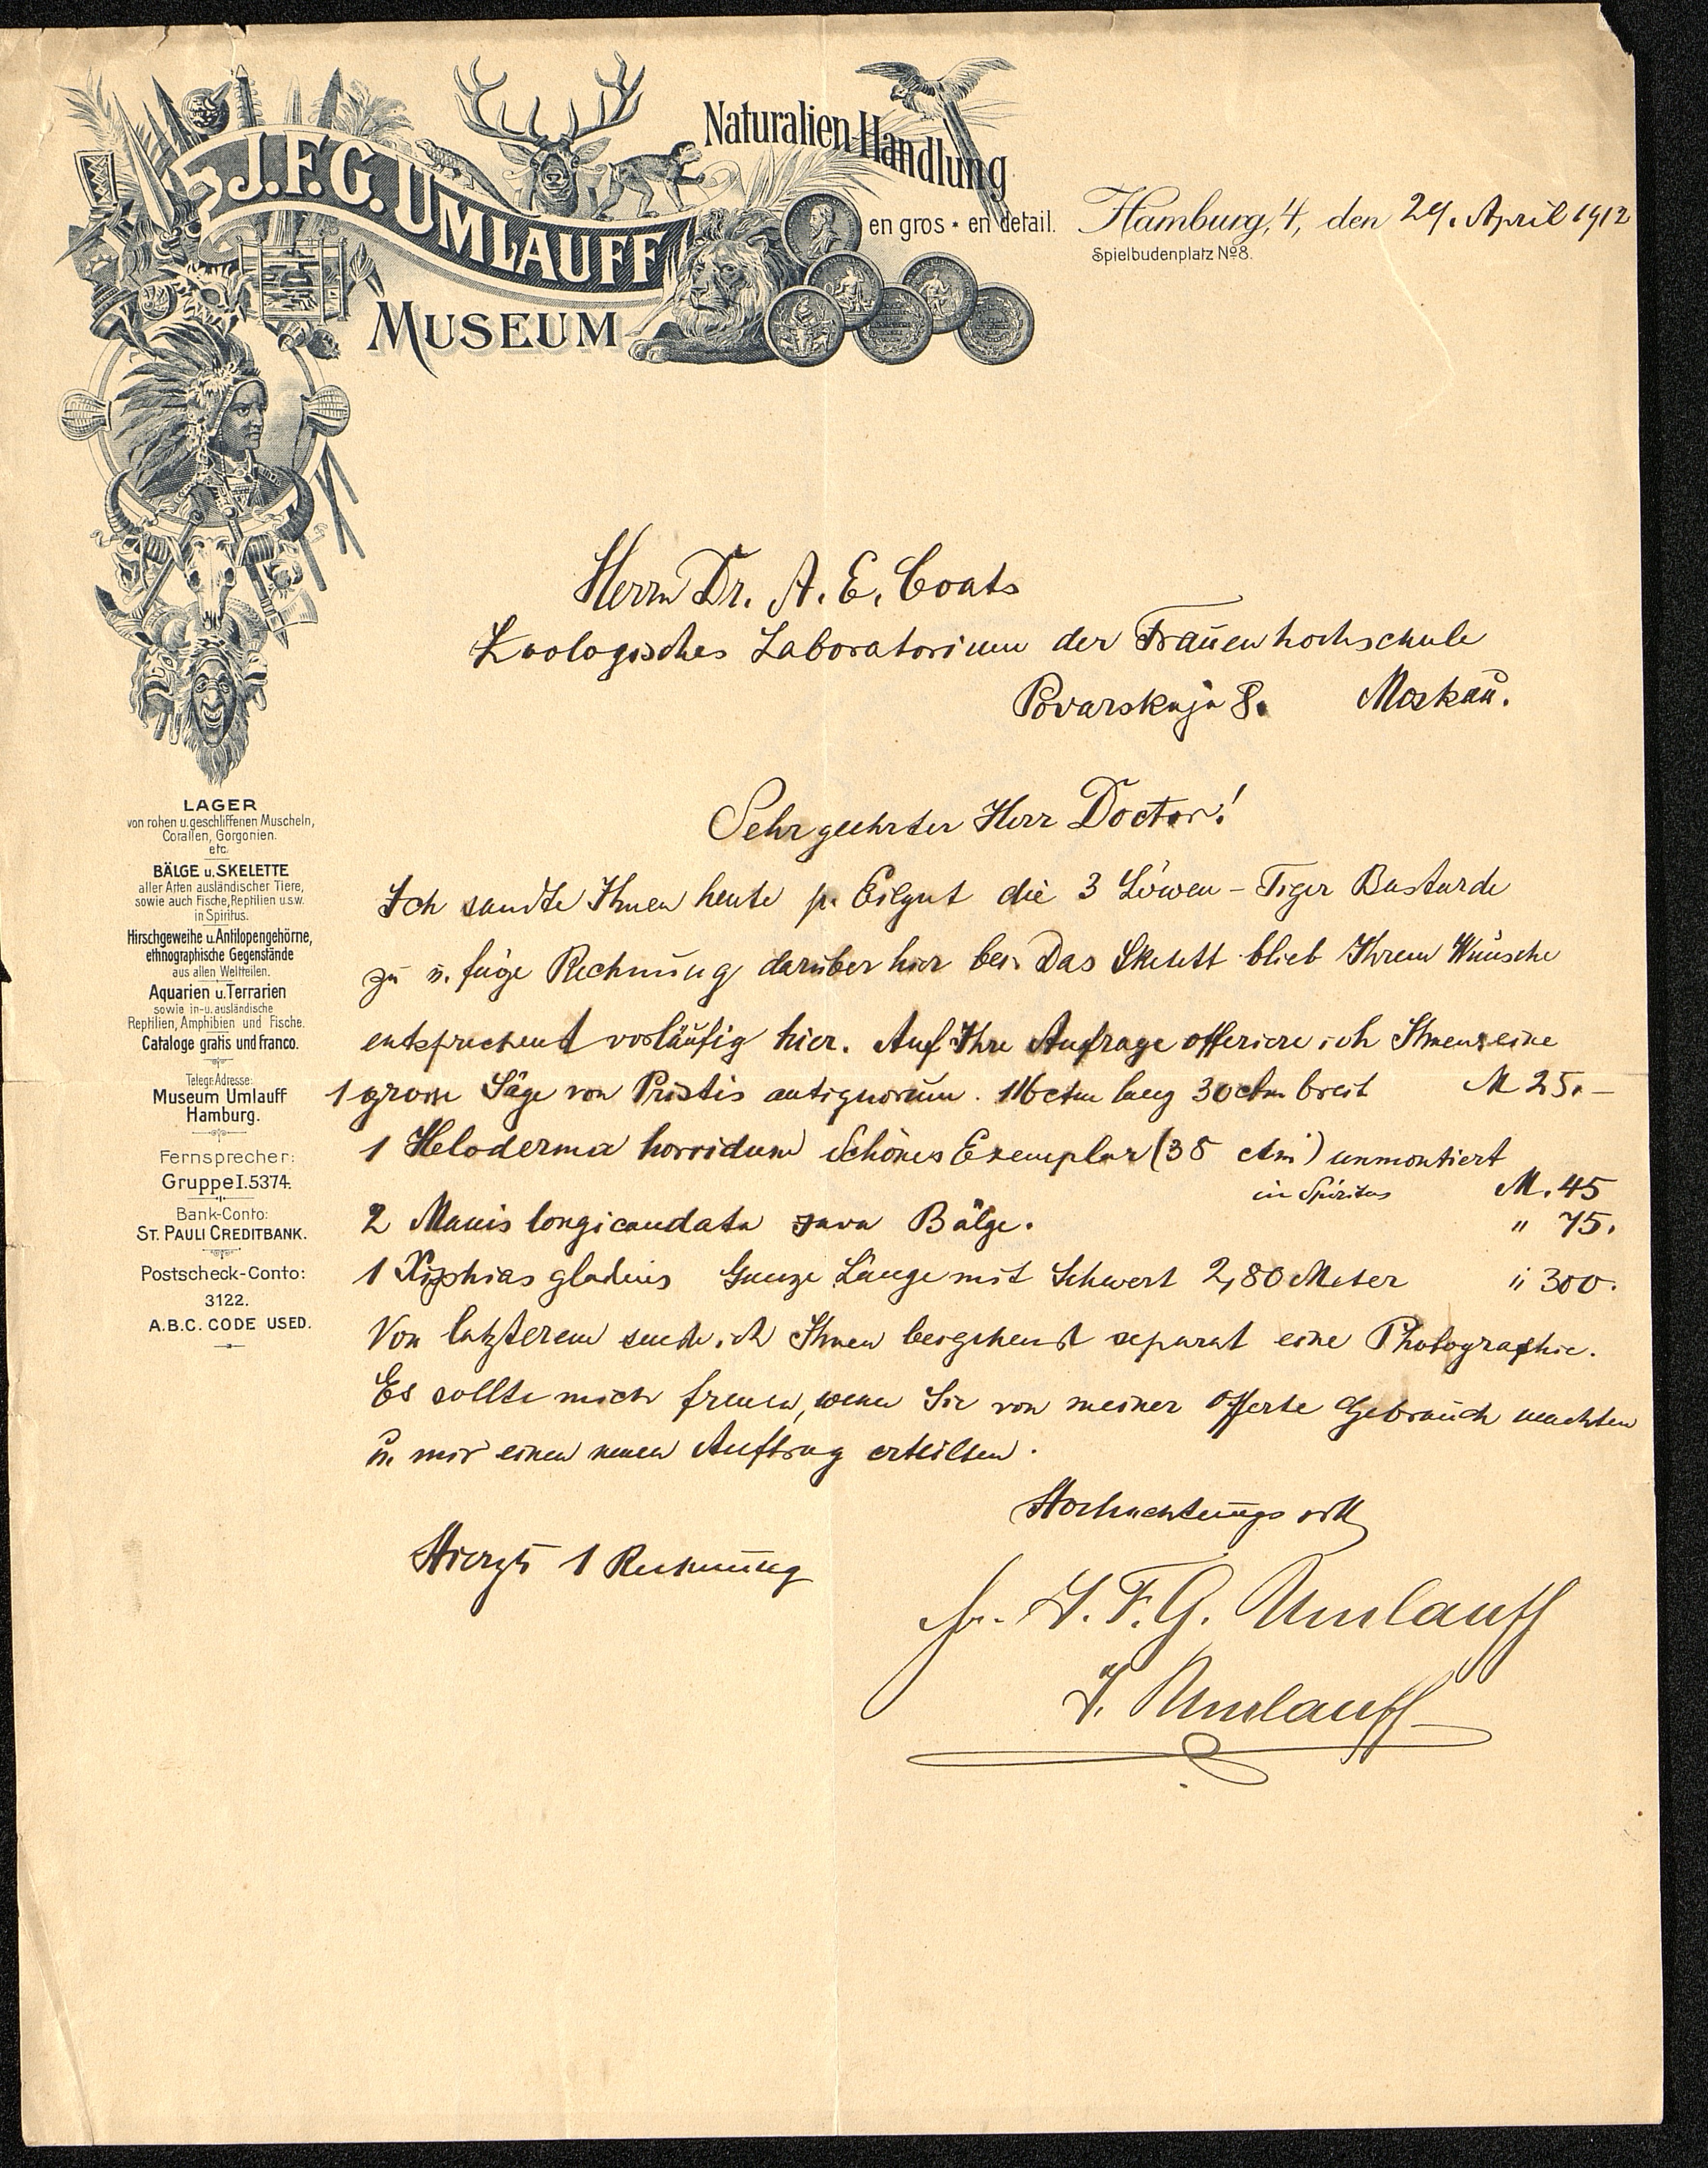 J.F.G. UMLAUFF
Naturalien-Handlung
en gros * en détail.
MUSEUM
Hamburg, 4, den 29. April 1912
Spielbudenplatz No 8.
Herrn Dr. A. E. Coats
Zoologisches Laboratorium der Frauenhochschule
Povarskaja 8. Moskau.
Sehr geehrter Herr Doctor!
Ich sandte Ihnen heute p. Eilgut die 3 Löwen-Tiger Bastarde
zu u. füge Rechnung darüber hier bei. Das Skelett blieb Ihrem Wunsche
entsprechend vorläufig hier. Auf Ihre Anfrage offeriere ich Ihnen eine
1 grosse Säge von Pristis antiquorum. 116 ctm lang 30 ctm breit M 25.-
1 Heloderma horridum Schönes Exemplar (38 ctm) unmontiert
in Spiritus M. 45
2 Manis longicaudata Bälge. " 75.
1 Xiphias gladius Ganze Länge mit Schwert 2,80 Meter " 300.
Von letzterem sende ich Ihnen beigehend separat eine Photographie.
Es sollte mich freuen, wenn Sie von meiner Offerte Gebrauch machten
u. mir einen neuen Auftrag erteilten.
Hochachtungsvoll
Hierzu 1 Rechnung
J. F. G. Umlauff
J. Umlauff
LAGER
von rohen u. geschliffenen Muscheln,
Corallen, Gorgonien.
etc.
BÄLGE u. SKELETTE
aller Arten ausländischer Tiere,
sowie auch Fische, Reptilien u.s.w.
in Spiritus.
Hirschgeweihe u. Antilopengehörne,
ethnographische Gegenstände
aus allen Weltteilen.
Aquarien u. Terrarien
sowie in- u. ausländische
Reptilien, Amphibien und Fische.
Cataloge gratis und franco.
Telegr. Adresse:
Museum Umlauff
Hamburg.
Fernsprecher:
Gruppe I. 5374.
Bank-Conto:
ST. PAULI CREDITBANK.
Postscheck-Conto:
3122.
A.B.C. CODE USED.